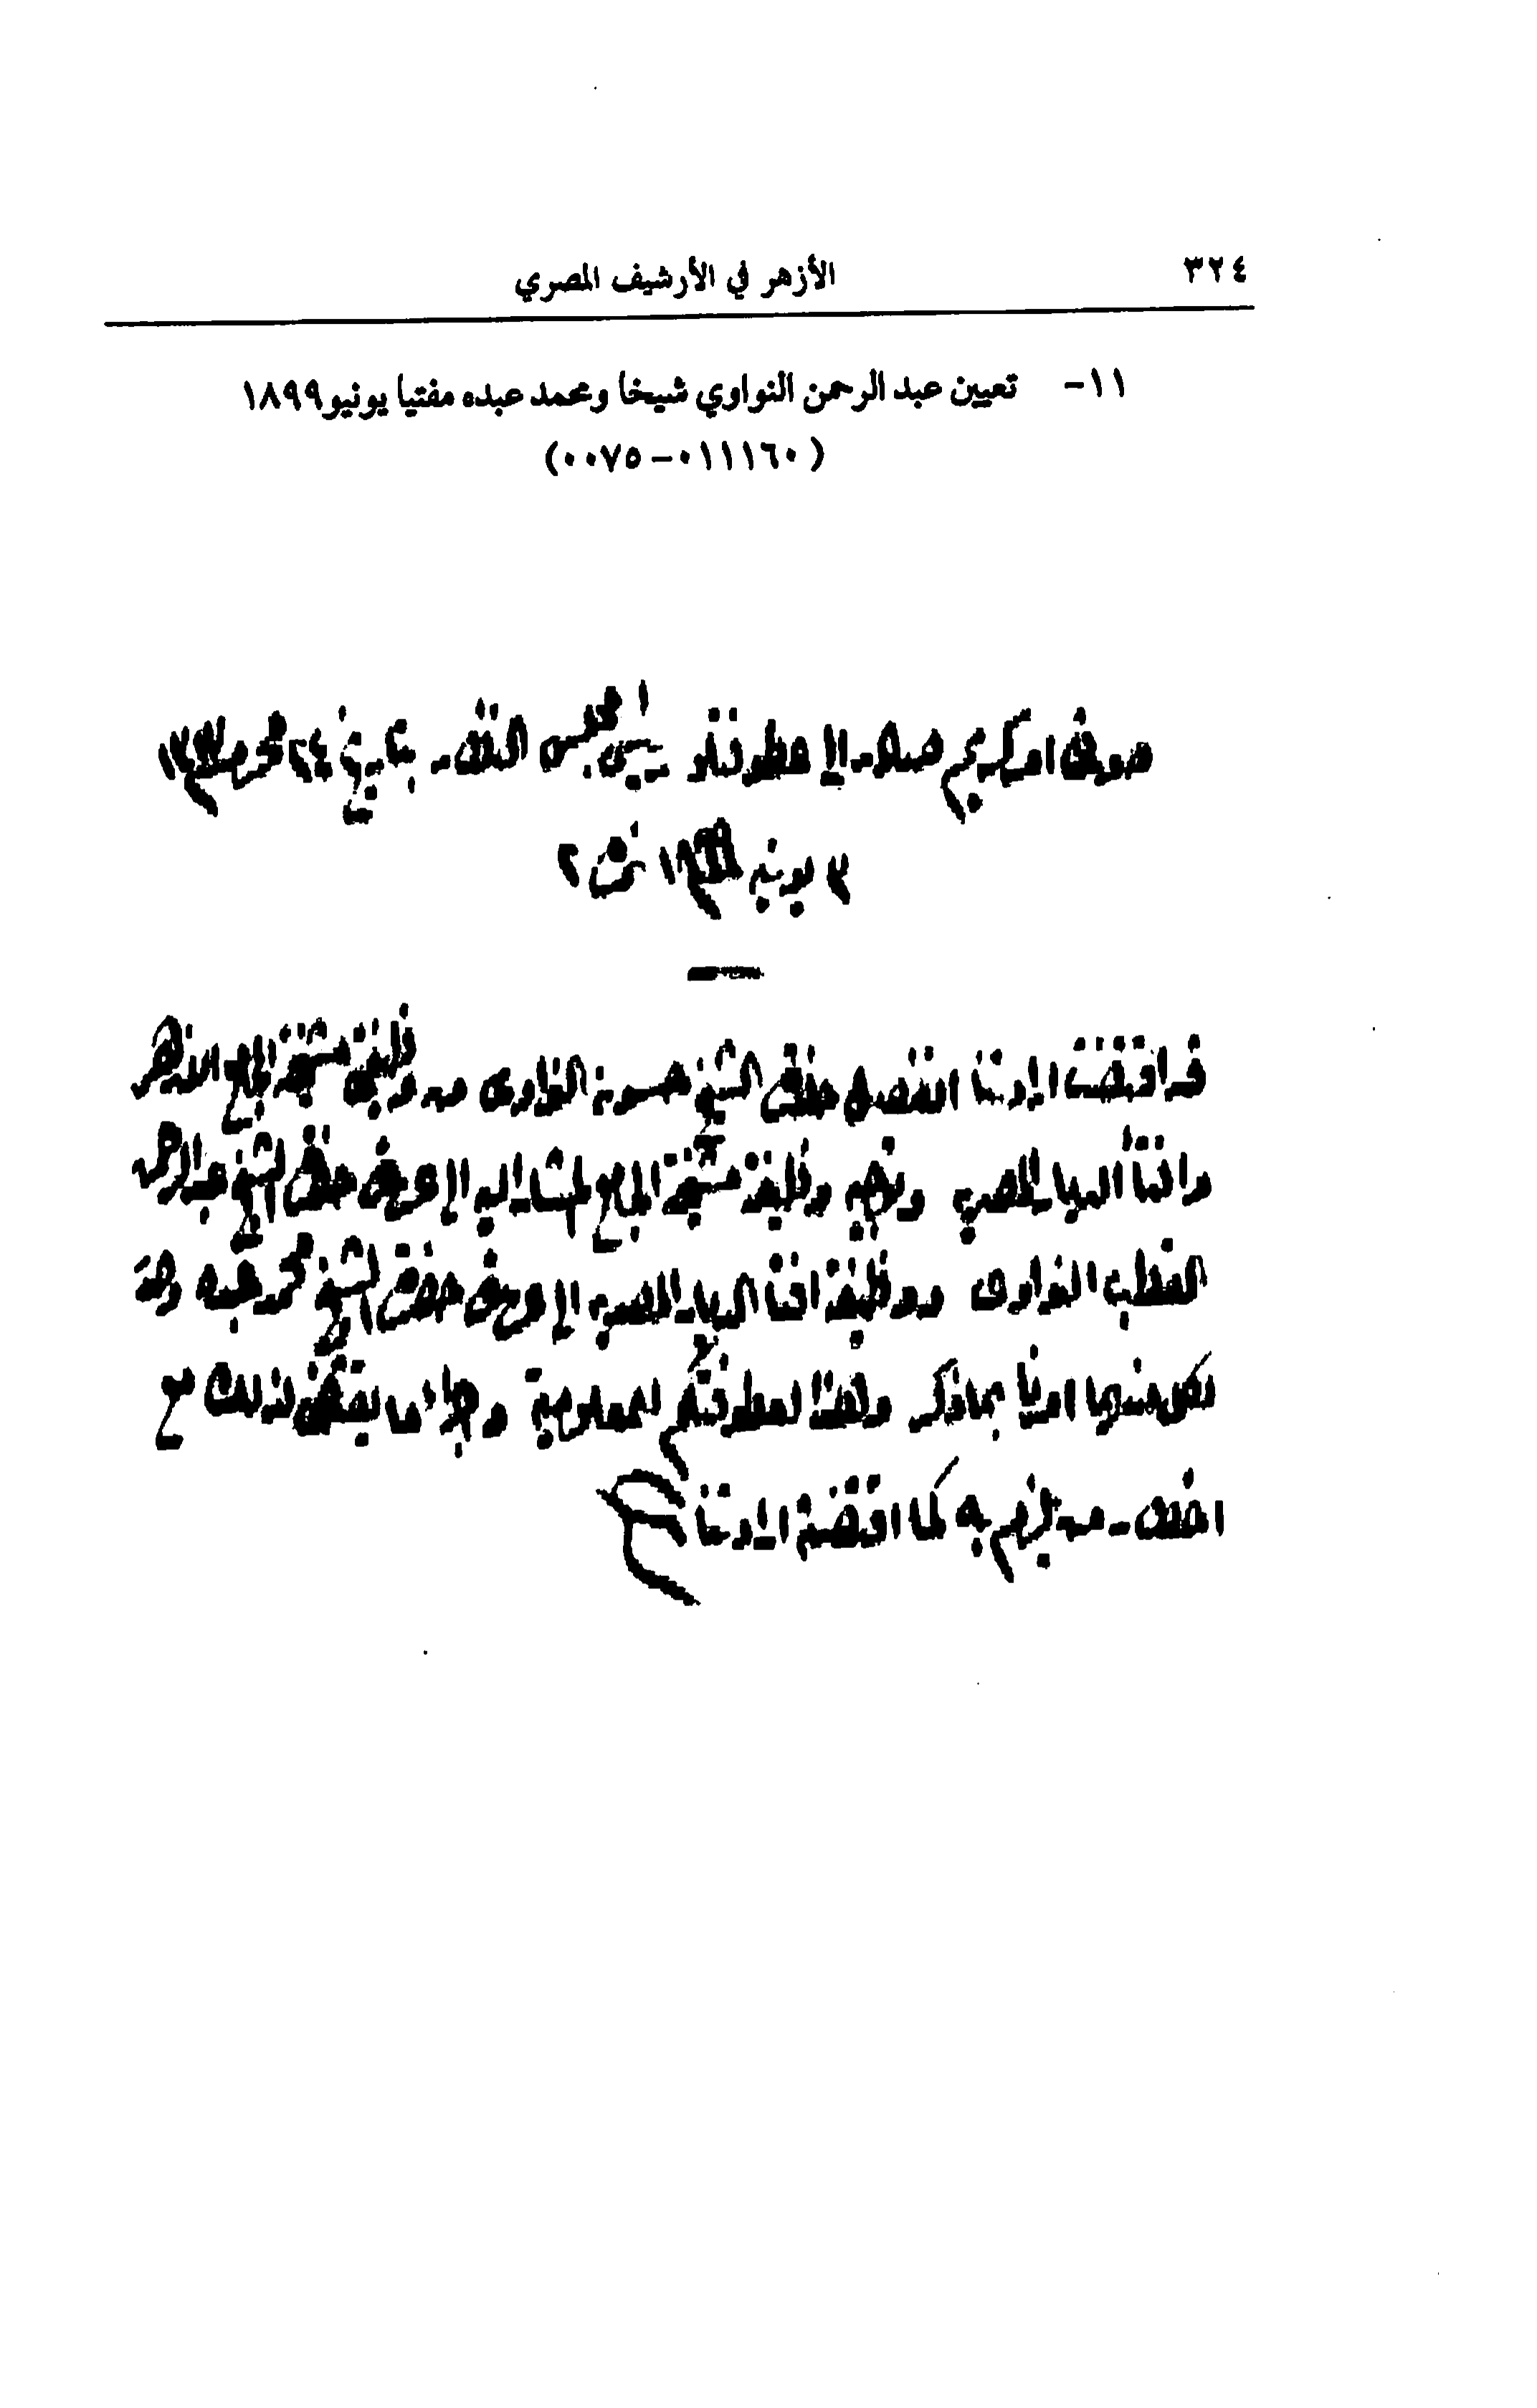 ٣٢٤ الأزهر في الأرشيف المصري
١١- تعيين عبد الرحمن النواوي شيخا ومحمد عبده مفتيا يونيو ١٨٩٩
(٠١١١٦٠-٠٠٧٥)
صورة امر كريم صادر الى عطوفتلو رئيس مجلس النظار بتاريخ ٢٤ محرم ١٣١٧
٣ يونيه ١٨٩٩ نمرة ٢
قد اقتضت ارادتنا فصل حضرة الشيخ حسونه النواوى من وظيفتى مشيخة الجامع الازهر
وافتاء الديار المصرية وتوجيه وظيفة مشيخة الجامع المشار اليه الى عهدة حضرة الشيخ عبد الرحمن
القطب النواوى ووظيفة افتاء الديار المصرية الى عهدة حضرة الشيخ محمد عبده وصدر
لكل منهما امرنا بما ذكر ولزم هذا لعطوفتكم للمعلومية واجراء ما يقتضى لذلك مع
اخطار من يلزم به كما اقتضته ارادتنا